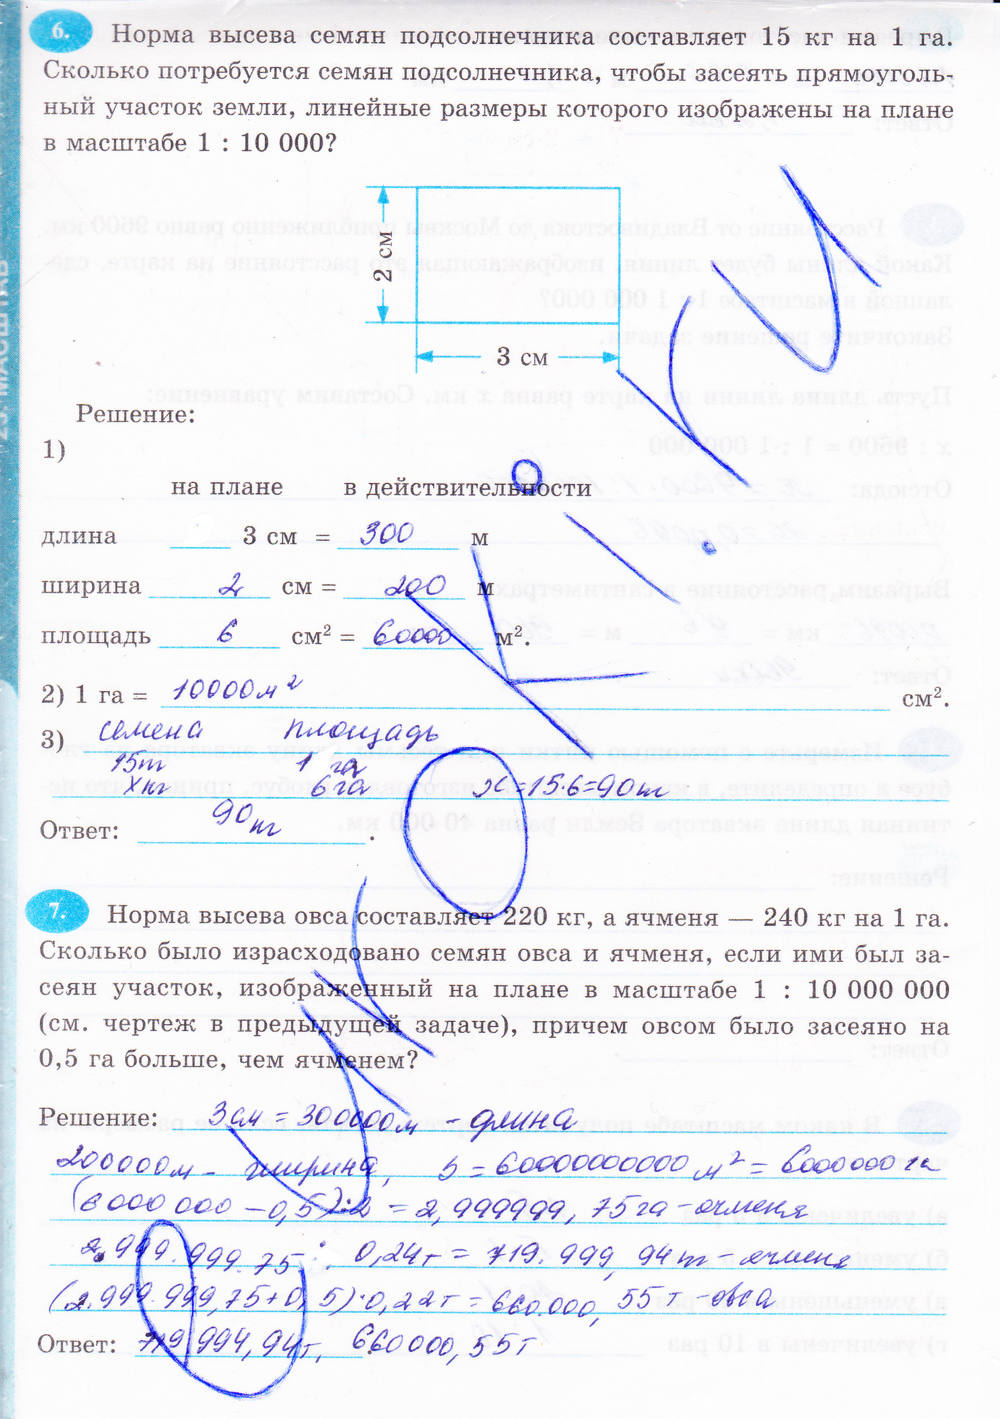 6. Норма высева семян подсолнечника составляет 15 кг на 1 га.
Сколько потребуется семян подсолнечника, чтобы засеять прямоуголь-
ный участок земли, линейные размеры которого изображены на плане
в масштабе 1 : 10 000?
2 см
3 см
Решение:
1)
на плане в действительности
длина 3 см = 300 м
ширина 2 см = 200 м
площадь 6 см² = 60000 м².
2) 1 га = 10000м² см².
3) семена площадь
15кг 1 га
Хкг 6 га х=15·6=90кг
Ответ: 90кг.
7. Норма высева овса составляет 220 кг, а ячменя — 240 кг на 1 га.
Сколько было израсходовано семян овса и ячменя, если ими был за-
сеян участок, изображенный на плане в масштабе 1 : 10 000 000
(см. чертеж в предыдущей задаче), причем овсом было засеяно на
0,5 га больше, чем ячменем?
Решение: 3см = 300000м - длина
200000м - ширина, S = 60000000000 м² = 6000000 га
(6000 000 - 0,5):2 = 2,999999,75га - ячменя
2.999.999.75 · 0,24т = 719.999,94т - ячменя
(2.999.999,75+0,5)·0,22т = 660.000,55т - овса
Ответ: 719.994,94т, 660000,55т